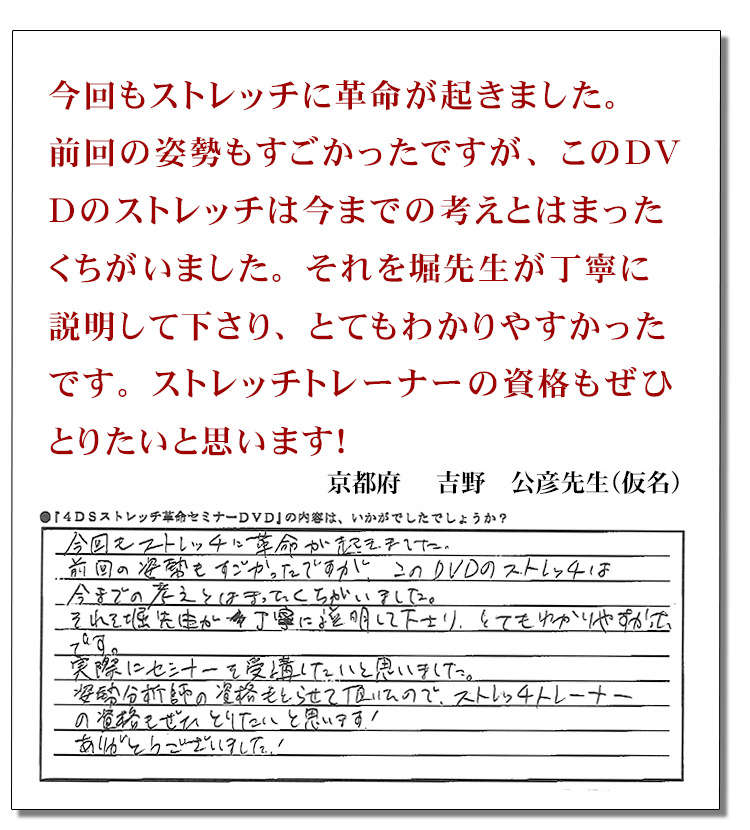 今回もストレッチに革命が起きました。
前回の姿勢もすごかったですが、このDV
Dのストレッチは今までの考えとはまった
くちがいました。それを堀先生が丁寧に
説明して下さり、とてもわかりやすかった
です。ストレッチトレーナーの資格もぜひ
とりたいと思います!
京都府 吉野 公彦先生(仮名)
●『4DSストレッチ革命セミナーDVD』の内容は、いかがでしたでしょうか?
今回もストレッチに革命が起きました。
前回の姿勢もすごかったですが、このDVDのストレッチは
今までの考えとはまったくちがいました。
それを堀先生が丁寧に説明して下さり、とてもわかりやすかった
です。
実際にセミナーを受講したいと思いました。
姿勢分析師の資格もとらせて頂いたので、ストレッチトレーナー
の資格もぜひとりたいと思います!
ありがとうございました!